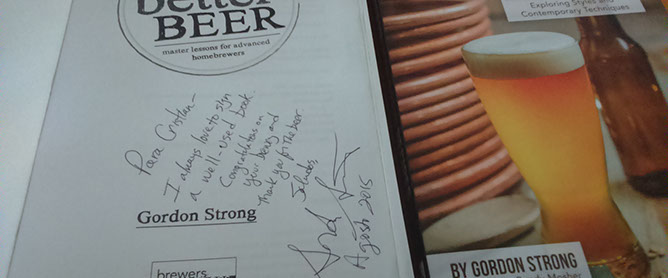 better
BEER
master lessons for advanced
homebrewers
Para Cristian –
I always love to sign
a well-used book.
Congratulations on
your beers and
thank you for the beer.
Saludos,
Gordon Strong
Agosto 2015
Gordon Strong
brewers
Exploring Styles and
Contemporary Techniques
BY GORDON STRONG